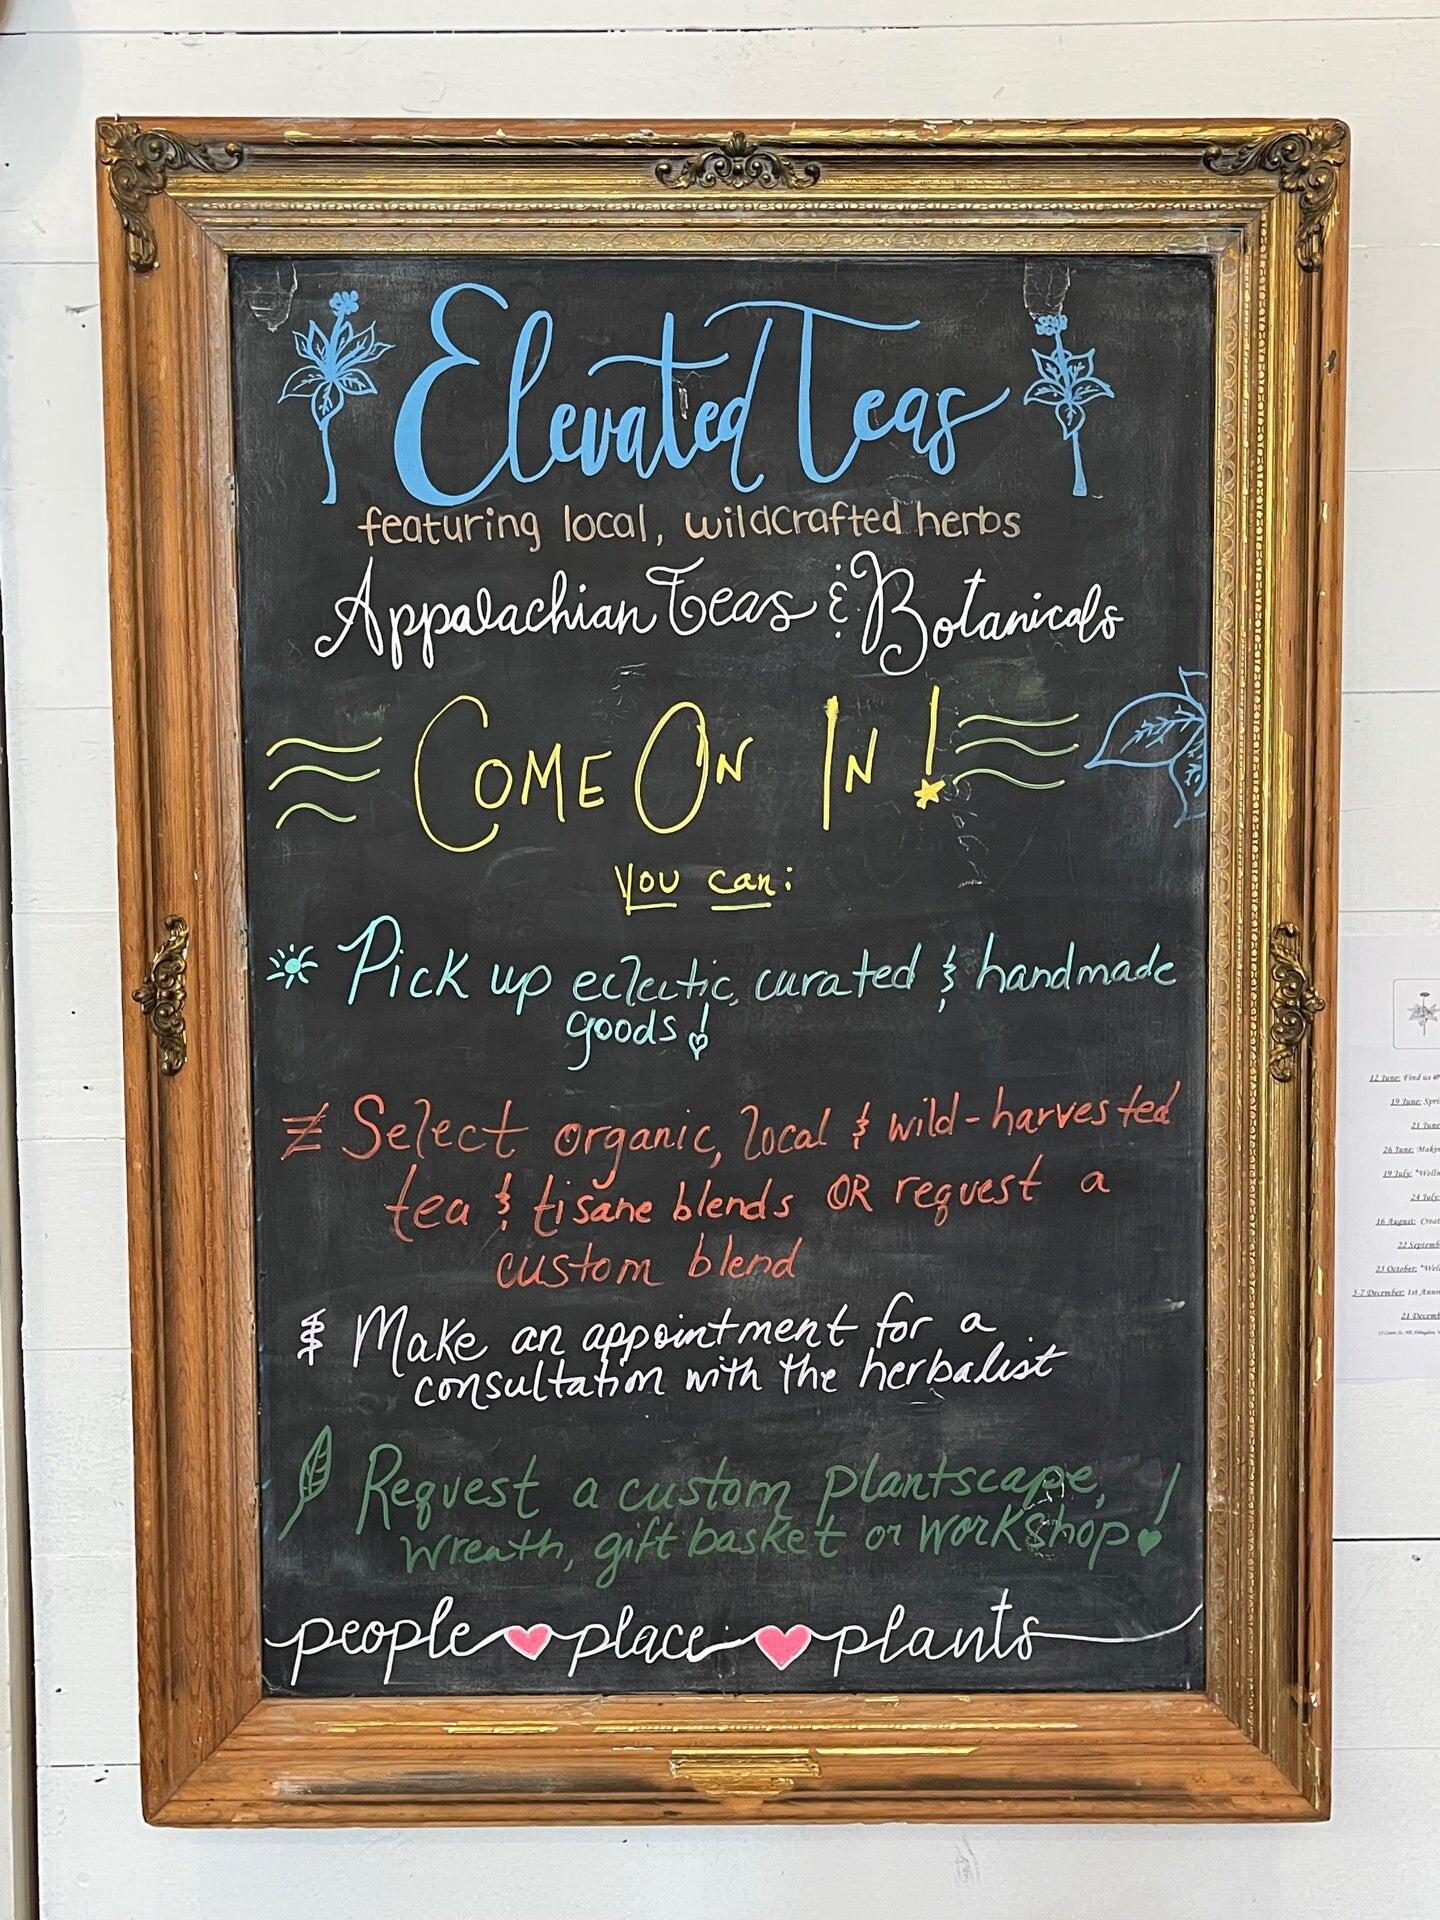 Elevated Teas
featuring local, wildcrafted herbs
Appalachian Teas & Botanicals
COME ON IN!
You can:
Pick up eclectic, curated & handmade
goods!
Select organic, local & wild-harvested
tea & tisane blends OR request a
custom blend
Make an appointment for a
consultation with the herbalist
Request a custom plantscape,
wreath, gift basket or workshop!
people place plants
12 June: Find us @
19 June: Spri
21 June
26 June: Makin
19 July: "Welln
24 July:
16 August: Creat
22 Septemb
25 October: "Wel
5-7 December: 1st Annu
21 Decemb